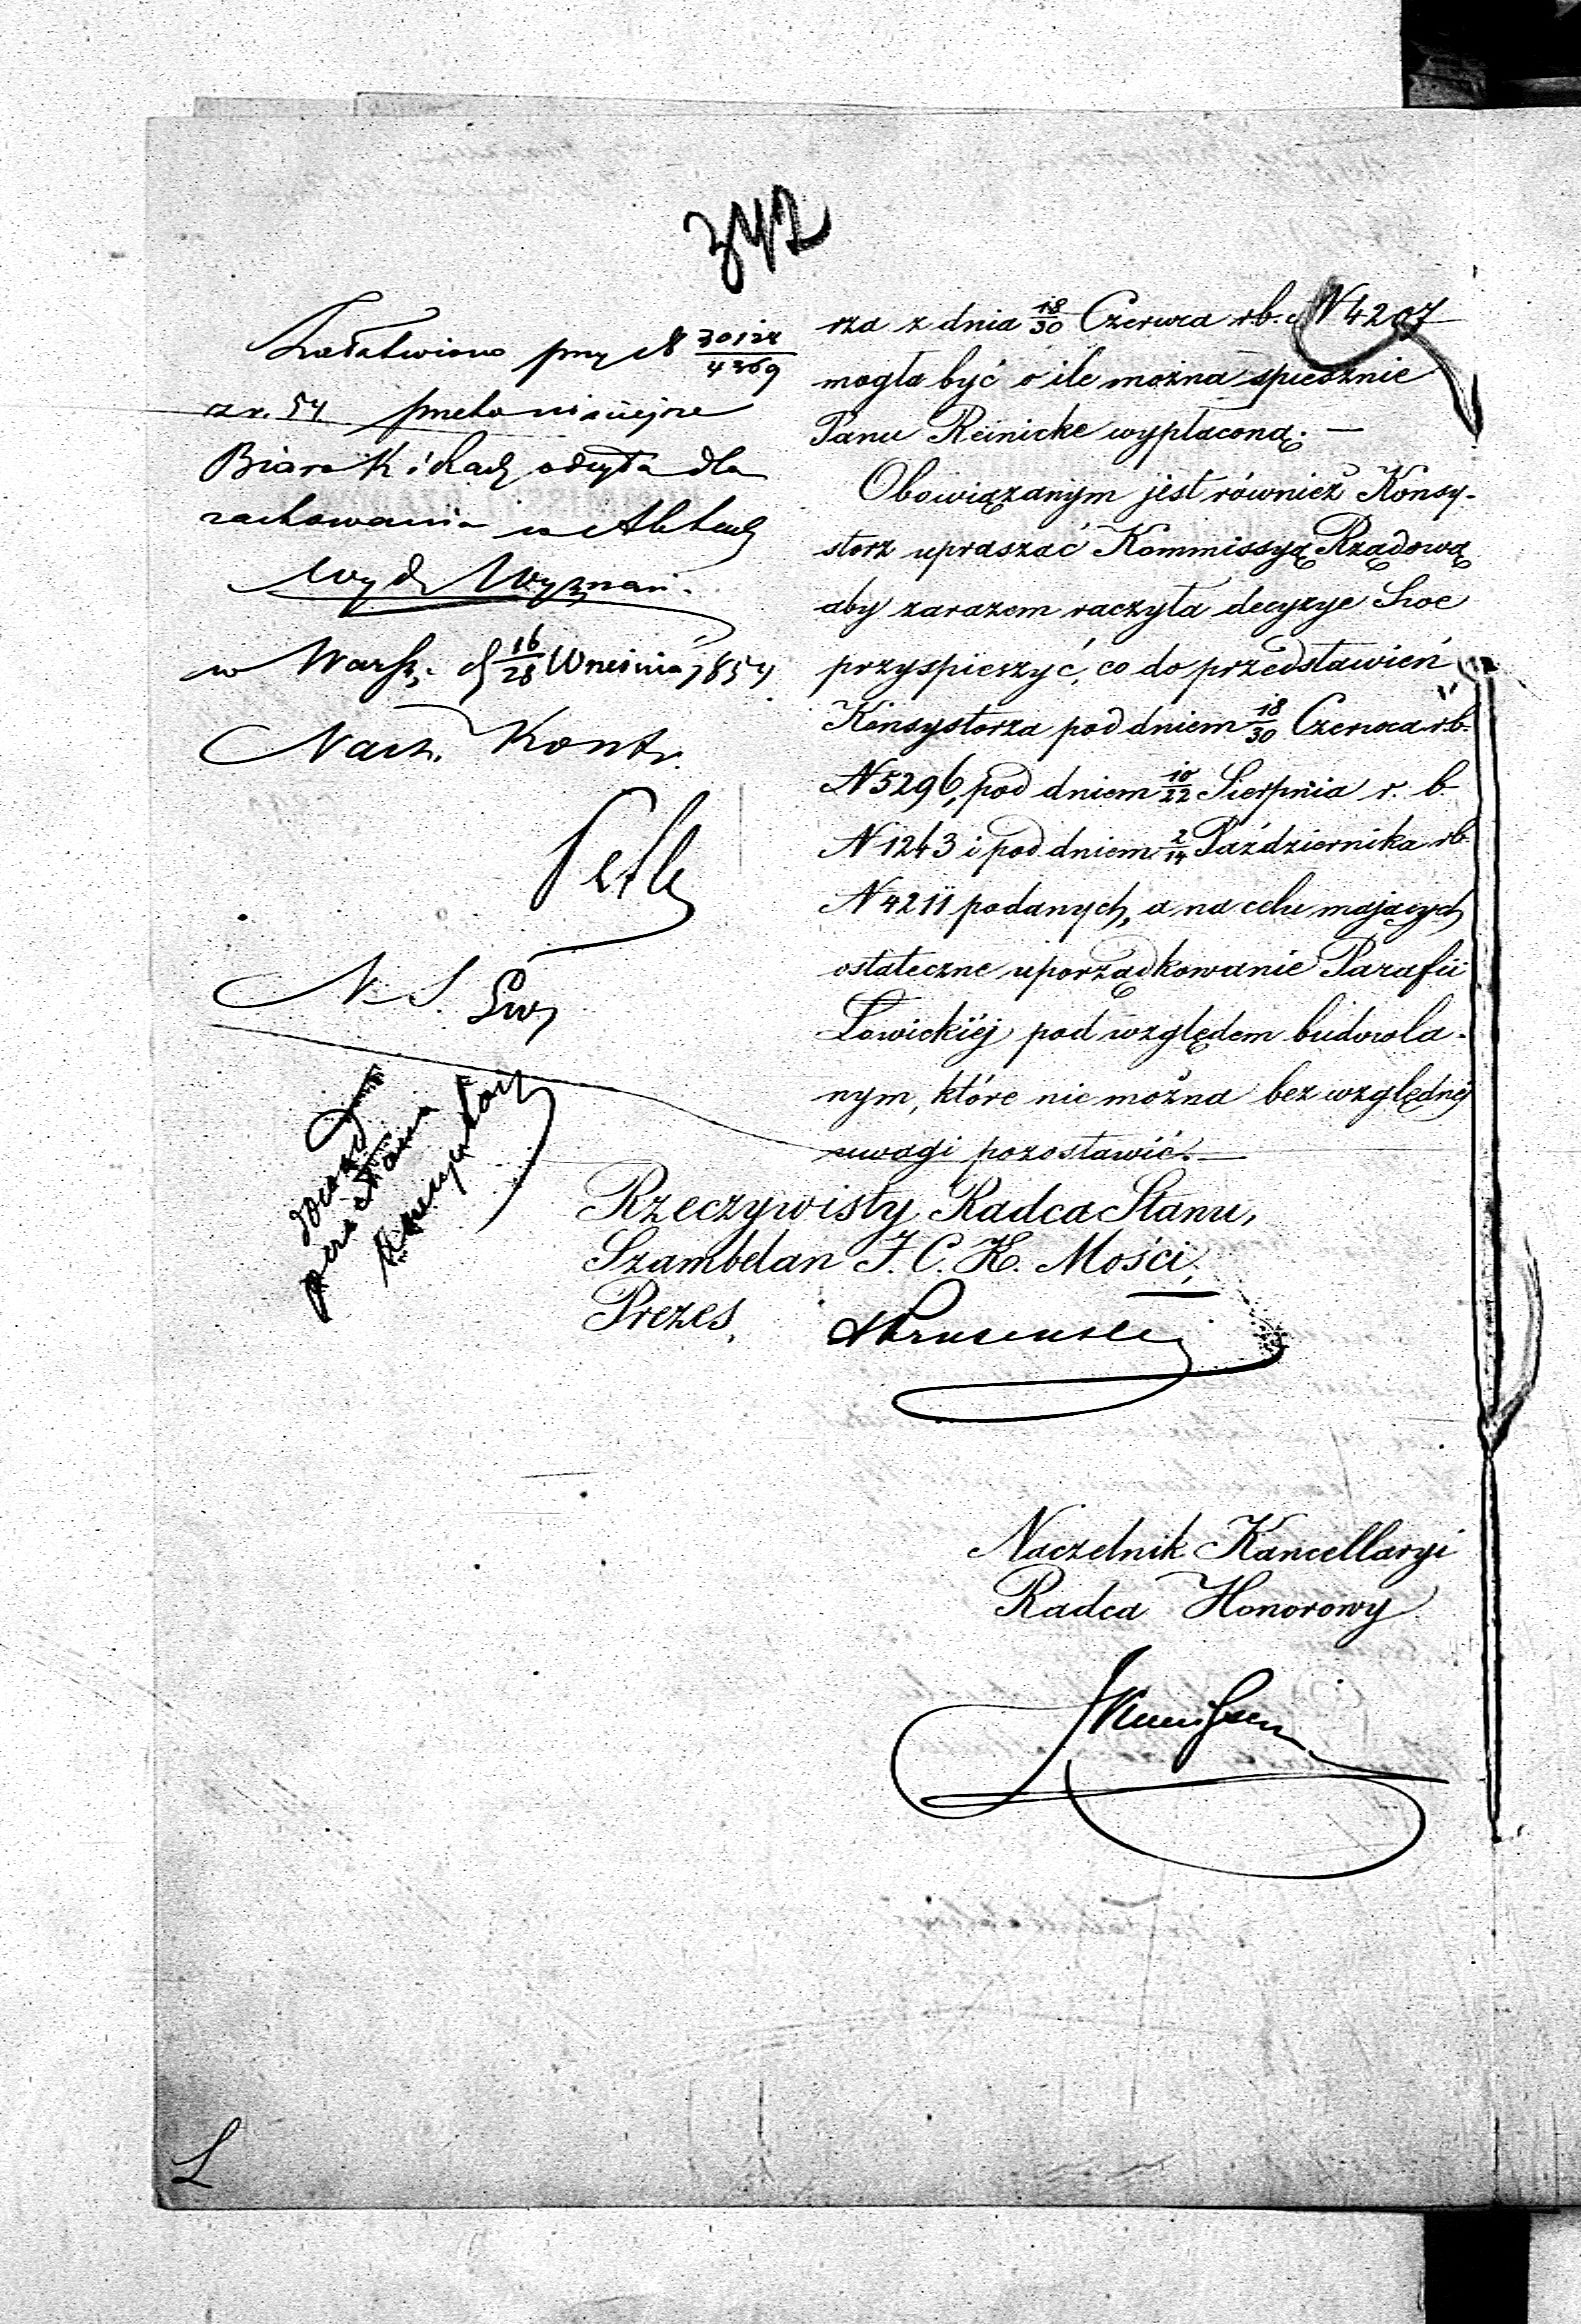 342
Załatwiono przy N 30128/4369
ar. 54
Biaro K i Rach. odsyła dla
zachowania w Aktach
Wyd. Wyznań.
w Warsz. d. 16/28 Września 1854
Nacz. Kontr.
N. S.
rza z dnia 18/30 Czerwca rb. N 4207
mogła być o ile można spiesznie
Panu Reinicke wypłaconą. —
Obowiązanym jest również Konsy-
storz upraszać Kommissyą Rządową
aby zarazem raczyła decyzye Swe
przyspieszyć, co do przedstawień
Konsystorza pod dniem 18/30 Czerwca r.b.
N 5296, pod dniem 10/22 Sierpnia r. b.
N 1243 i pod dniem 2/14 Października rb.
N 4211 podanych, a na celu mających
ostateczne uporządkowanie Parafii
Łowickiéj pod względem budowla-
nym, które nie można bez względnéj
uwagi pozostawić. —
Rzeczywisty Radca Stanu,
Szambelan J. C. K. Mości,
Prezes,
Naczelnik Kancellaryi
Radca Honorowy
L